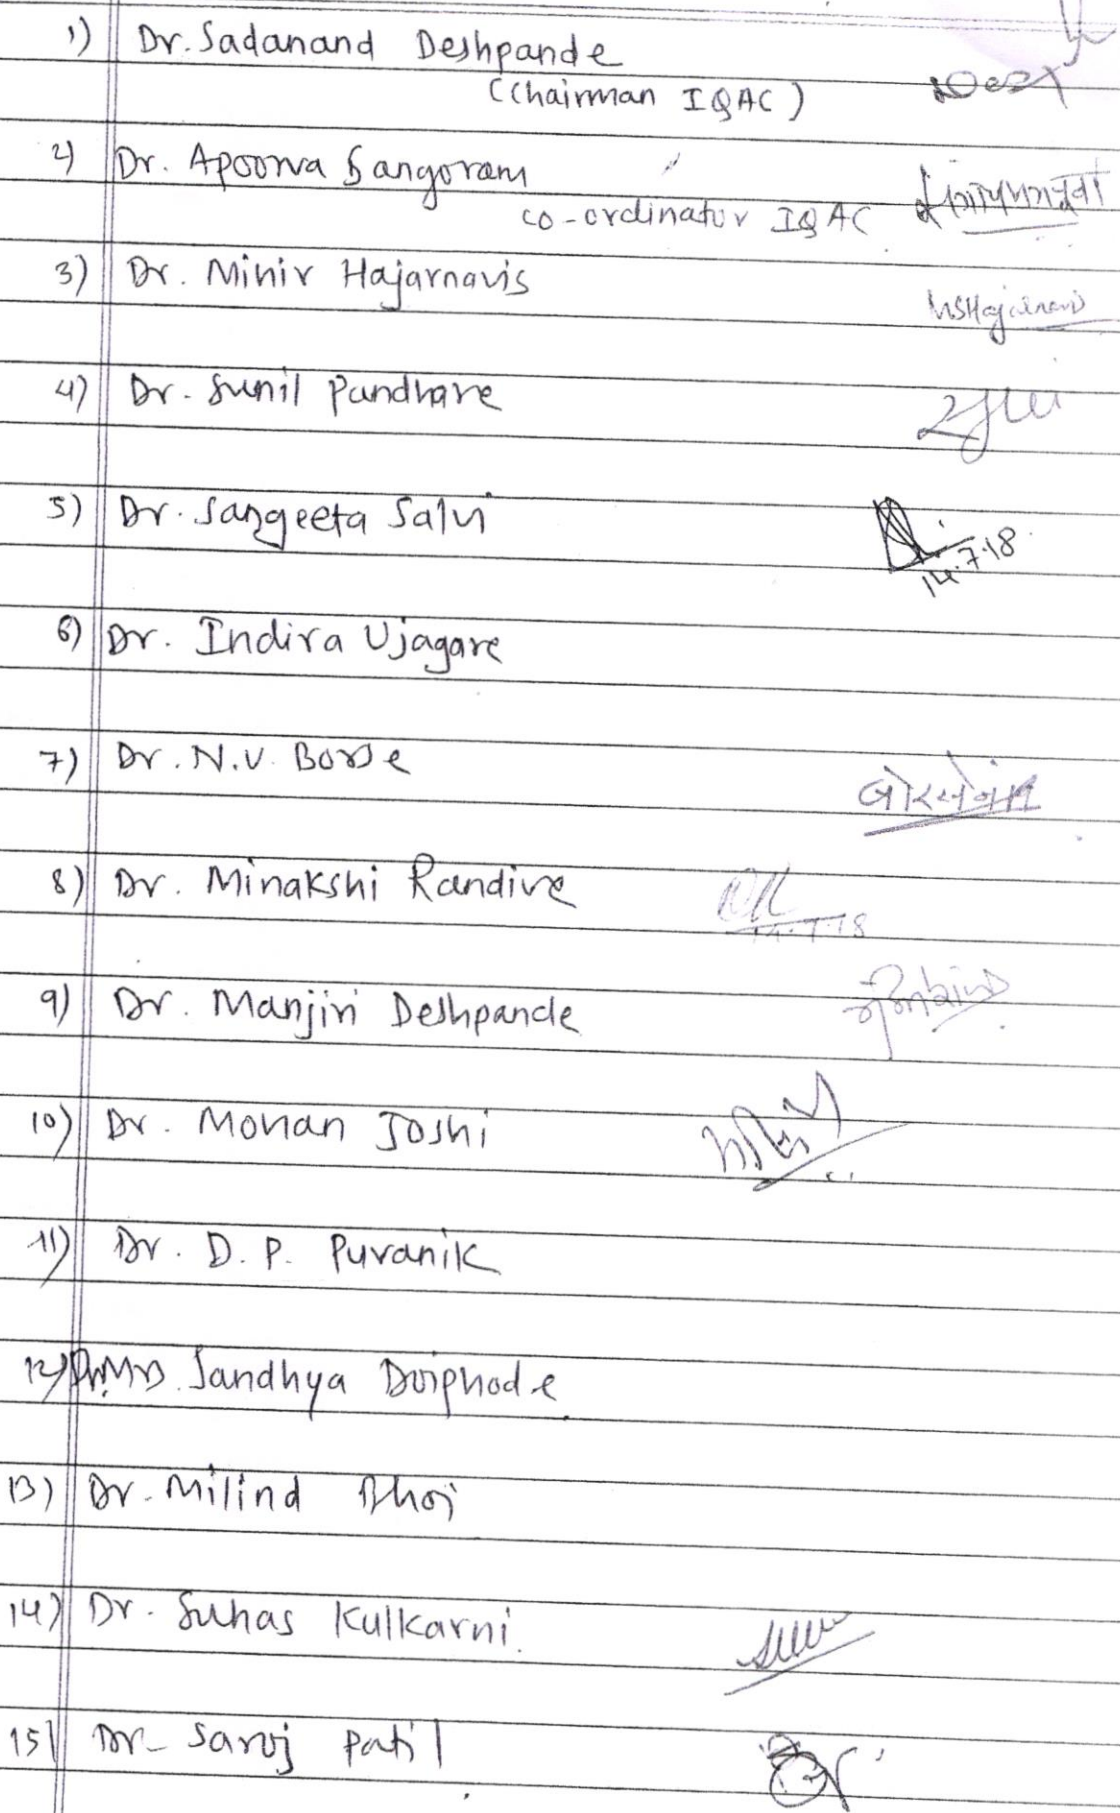 1) Dr. Sadanand Deshpande
(Chairman IQAC)
2) Dr. Apoorva Sangoram
co-ordinator IQAC
3) Dr. Mihir Hajarnavis
MSHajarnavis
4) Dr. Sunil Pandhare
5) Dr. Sangeeta Salvi
14.7.18
6) Dr. Indira Ujagare
7) Dr. N.V. Borse
8) Dr. Minakshi Randive
14.7.18
9) Dr. Manjiri Deshpande
10) Dr. Mohan Joshi
11) Dr. D. P. Puranik
12) Mrs. Sandhya Doiphode
13) Dr. Milind Bhoi
14) Dr. Suhas Kulkarni.
15) Dr. Saroj Patil